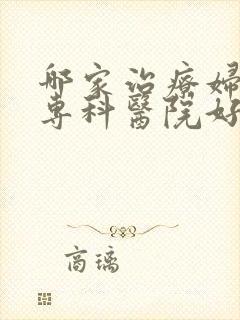 哪家治療婦
專科醫院好
商璃